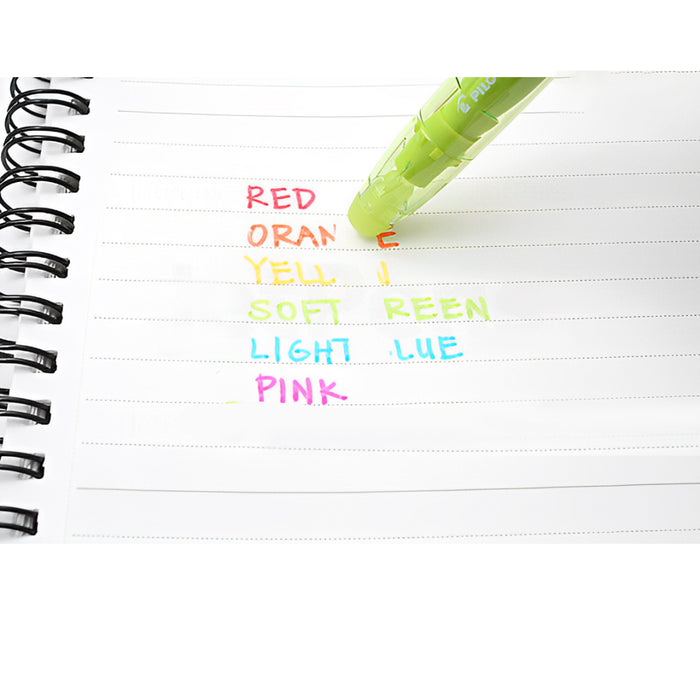 PILO
RED
ORAN E
YELL
SOFT REEN
LIGHT LUE
PINK